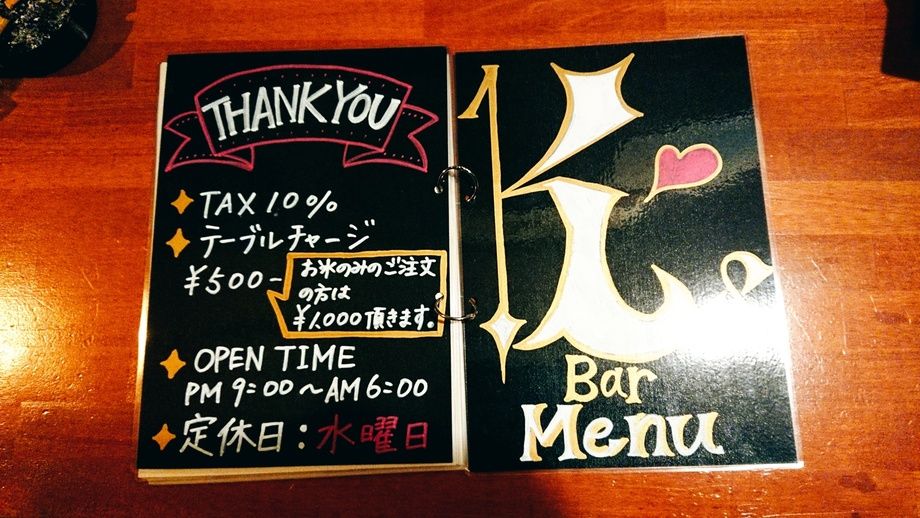 THANK YOU
TAX 10%
テーブルチャージ
¥500-
お米のみのご注文
の方は
¥1,000頂きます。
OPEN TIME
PM 9:00~AM 6:00
定休日:水曜日
Ki
Bar
Menu